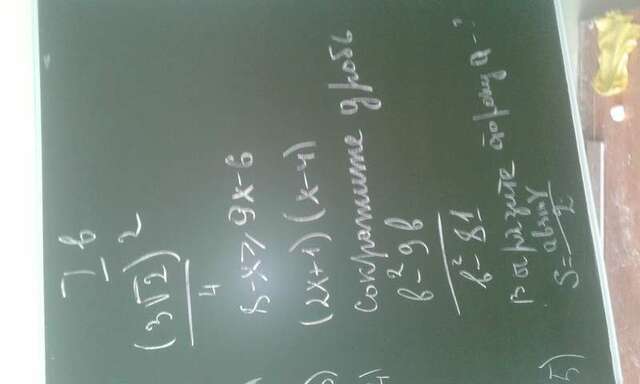 I в
(3√2)²
4
8-x≥9x-6
3) (2x+1)(x-4)
4) Сократите дробь
b²-9b
b²-81
Выразите сторону a-?
5) S=absinγ
2